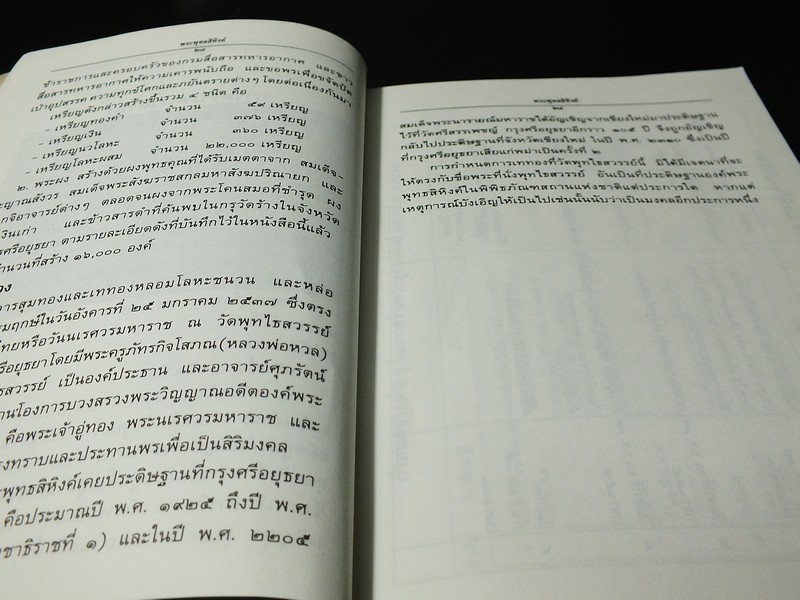 พระพุทธสิหิงค์
๒๘
ข้าราชการและครอบครัวของกรมสื่อสารทหารอากาศ และชาว
สื่อสารทหารอากาศให้ความเคารพนับถือ และขอพรเพื่อขจัดปัด
เป่าอุปสรรค ความทุกข์โศกและภยันตรายต่างๆ โดยต่อเนื่องกันมา
เหรียญดังกล่าวสร้างขึ้นรวม ๔ ชนิด คือ
- เหรียญทองคำ จำนวน ๕๙ เหรียญ
- เหรียญเงิน จำนวน ๓๗๖ เหรียญ
- เหรียญนวโลหะ จำนวน ๓๖๐ เหรียญ
- เหรียญโลหะผสม จำนวน ๒๒,๐๐๐ เหรียญ
๒. พระผง สร้างด้วยผงพุทธคุณที่ได้รับเมตตาจาก สมเด็จ-
ญาณสังวร สมเด็จพระสังฆราชสกลมหาสังฆปริณายก และ
กจิอาจารย์ต่างๆ ตลอดจนผงจากพระโคนสมอที่ชำรุด ผง
งินเก่า และข้าวสารดำที่ค้นพบในกรุวัดร้างในจังหวัด
รศรีอยุธยา ตามรายละเอียดดังที่บันทึกไว้ในหนังสือนี้แล้ว
จำนวนที่สร้าง ๑๖,๐๐๐ องค์
วง
ารสุมทองและเททองหลอมโลหะชนวน และหล่อ
มฤกษ์ในวันอังคารที่ ๒๕ มกราคม ๒๕๓๗ ซึ่งตรง
ไทยหรือวันนเรศวรมหาราช ณ วัดพุทไธสวรรย์
รีอยุธยาโดยมีพระครูภัทรกิจโสภณ(หลวงพ่อหวล)
ธสวรรย์ เป็นองค์ประธาน และอาจารย์ศุภรัตน์
านโองการบวงสรวงพระวิญญาณอดีตองค์พระ
คือพระเจ้าอู่ทอง พระนเรศวรมหาราช และ
งทราบและประทานพรเพื่อเป็นสิริมงคล
พุทธสิหิงค์เคยประดิษฐานที่กรุงศรีอยุธยา
คือประมาณปี พ.ศ. ๑๙๒๕ ถึงปี พ.ศ.
ชาธิราชที่ ๑) และในปี พ.ศ. ๒๒๐๕
พระพุทธสิหิงค์
๒๙
สมเด็จพระนารายณ์มหาราชได้อัญเชิญจากเชียงใหม่มาประดิษฐาน
ไว้ที่วัดศรีสรรเพชญ์ กรุงศรีอยุธยาอีกราว ๑๐๕ ปี จึงถูกอัญเชิญ
กลับไปประดิษฐานที่จังหวัดเชียงใหม่ ในปี พ.ศ. ๒๓๑๐ ซึ่งเป็นปี
ที่กรุงศรีอยุธยาเสียแก่พม่าเป็นครั้งที่ ๒
การกำหนดการเททองที่วัดพุทไธสวรรย์นี้ มิได้มีเจตนาที่จะ
ให้ตรงกับชื่อพระที่นั่งพุทไธสวรรย์ อันเป็นที่ประดิษฐานองค์พระ
พุทธสิหิงค์ในพิพิธภัณฑสถานแห่งชาติแต่ประการใด หากแต่
เหตุการณ์บังเอิญให้เป็นไปเช่นนั้นนับว่าเป็นมงคลอีกประการหนึ่ง